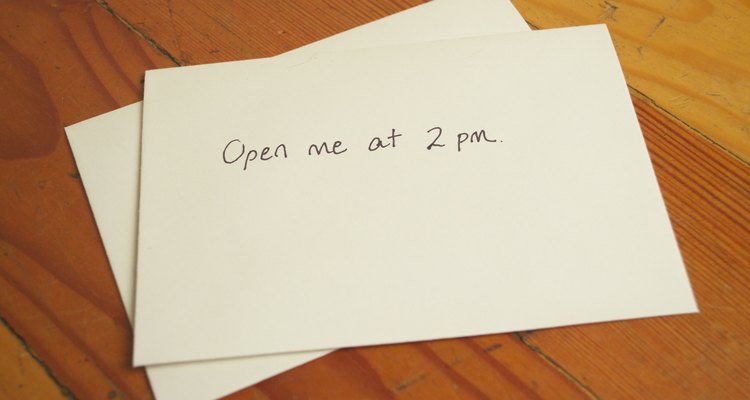 Open me at 2 pm.